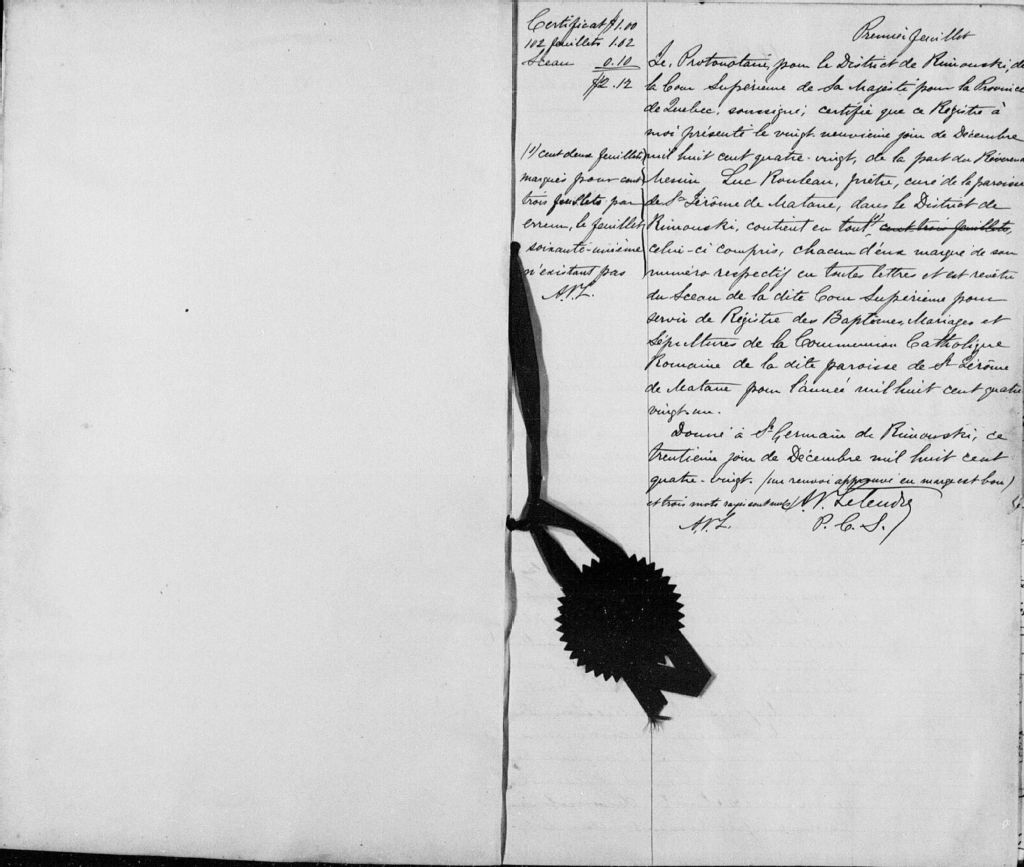 Certificat $1.00
102 feuillets 1.02
Sceau 0.10
$2.12
(1) cent deux feuillets
marqués pour cent
trois feuillets par
erreur, le feuillet
soixante-unième
n'existant pas
A.V.L.
Premier feuillet
Je, Protonotaire, pour le District de Rimouski, de
la Cour Supérieure de Sa Majesté pour la Province
de Québec, soussigné, certifie que ce Régistre à
moi présenté le vingt-neuvième jour de Décembre
mil huit cent quatre-vingt, de la part du Révérend
Messire Luc Rouleau, prêtre, curé de la paroisse
de St Jérôme de Matane, dans le District de
Rimouski, contient en tout (1) cent trois feuillets,
celui-ci compris, chacun d'eux marqué de son
numéro respectif en toutes lettres et est revêtu
du Sceau de la dite Cour Supérieure pour
servir de Régistre des Baptêmes, Mariages et
Sépultures de la Communion Catholique
Romaine de la dite paroisse de St Jérôme
de Matane pour l'année mil huit cent quatre
vingt-un.
Donné à St Germain de Rimouski, ce
trentième jour de Décembre mil huit cent
quatre-vingt. (un renvoi approuvé en marge est bon)
et trois mots rayés sont nuls) A.V. Letendre
A.V.L. P.C.S.